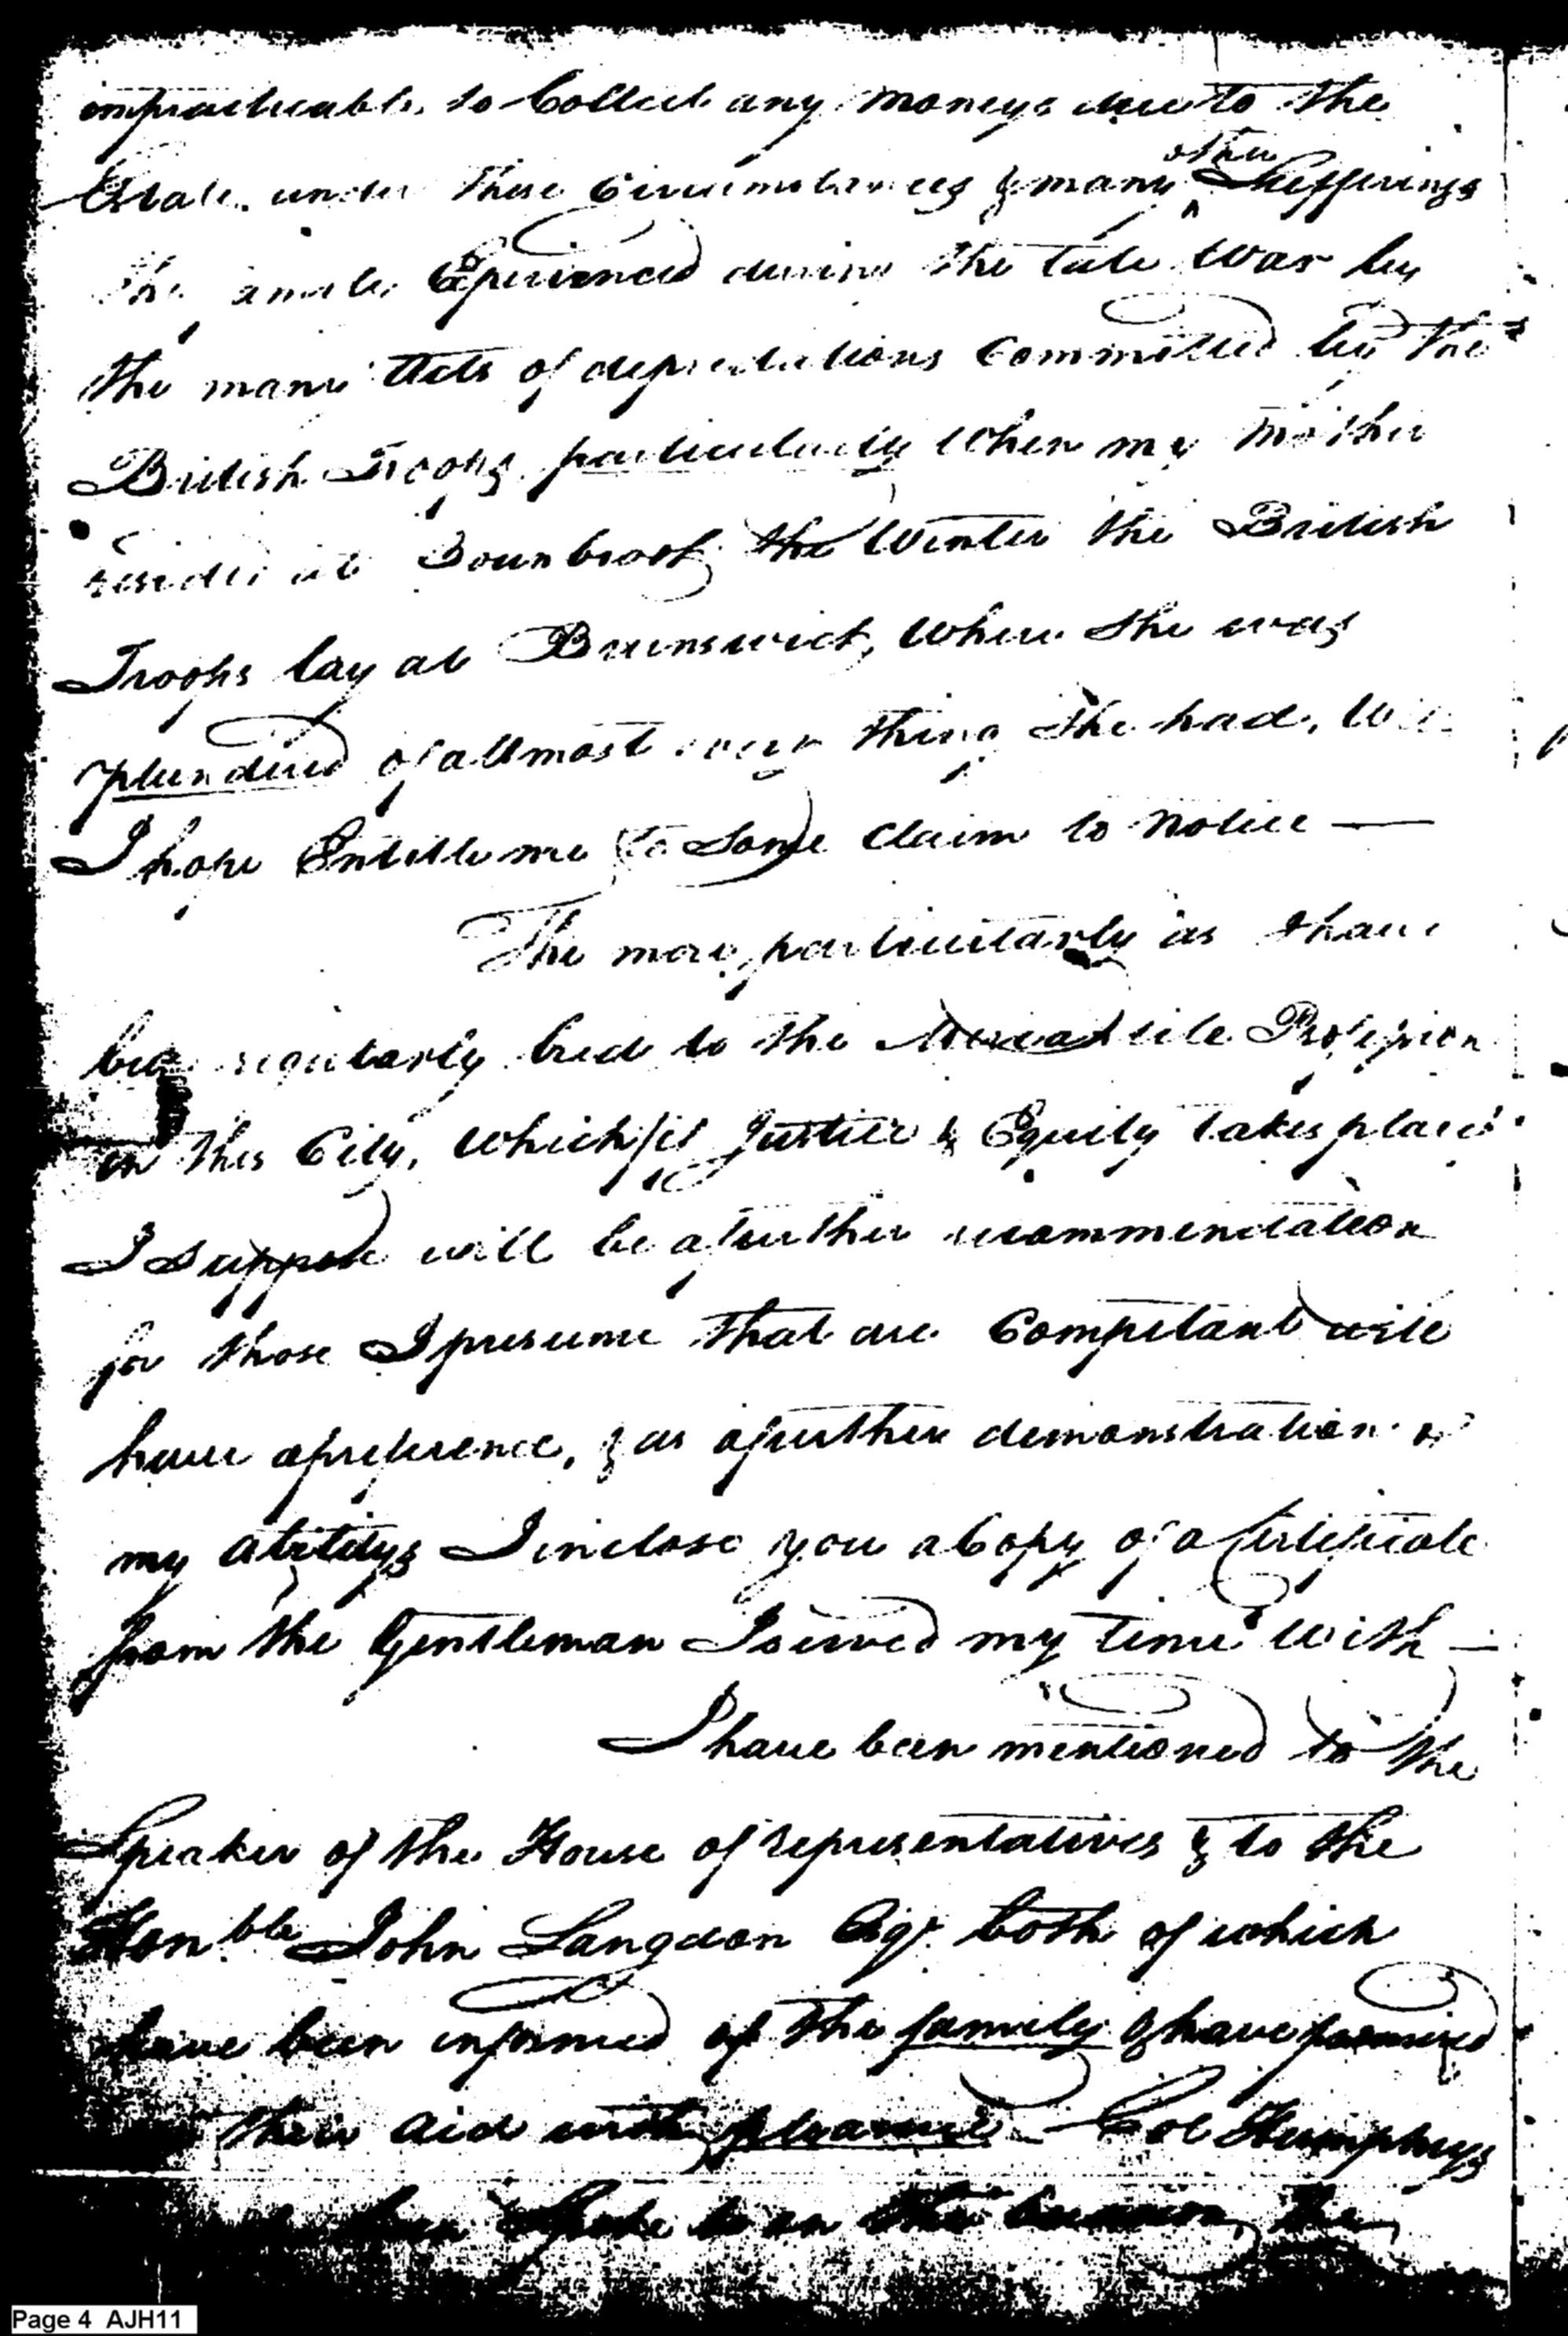 impracticable to Collect any moneys due to the
Estate. under these Circumstances & many other Sufferings
the family Experienced during the late War by
the many Acts of depredations Committed by the
British Troops particularly When my Mother
resided at Bounbrook the Winter the British
Troops lay at Brunswick, Where She was
plundered of allmost every thing She had, Will
I hope Entitle me to Some Claim to Notice —
The more particularly as I have
been regularly bred to the Mercantile Profession
in this City, Which if Justice & Equity takes place
I Suppose will be a further recommendation
for those I presume that are Competant will
have a preference, & as a further demonstration of
my abilitys I inclose you a Copy of a Certificate
from the Gentleman I served my time with —
I have been mentioned to the
Speaker of the House of representatives & to the
Honble John Langdon Esqr. both of which
have been informed of the family & have promised
their aid with pleasure — Col Humphrys
been Spoke to on the business, the
Page 4 AJH11